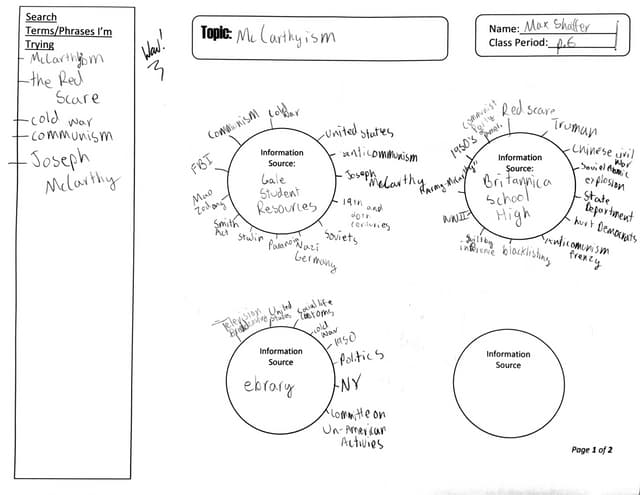 Search
Terms/Phrases I'm
Trying
- McCarthyism
- the Red
Scare
- cold war
- communism
- Joseph
McCarthy
Wow!
Topic: McCarthyism
Name: Max Shaffer
Class Period: p.6
Information
Source:
Gale
Student
Resources
Communism
Cold
War
United States
anticommunism
Joseph
McCarthy
19th and
20th
centuries
Soviets
Nazi
Germany
Stalin
Smith
Act
Mao
Zedong
FBI
Information
Source:
Britannica
School
High
Communist
Party
1950's
Red scare
Truman
Chinese civil
war
Soviet Atomic
explosion
State
Department
hurt Democrats
Anticomunism
frenzy
blacklisting
WWII
Information
Source
ebrary
Television
United
States
Social life
customs
cold
war
1950
Politics
NY
Committe on
Un-American
Information
Source
Page 1 of 2